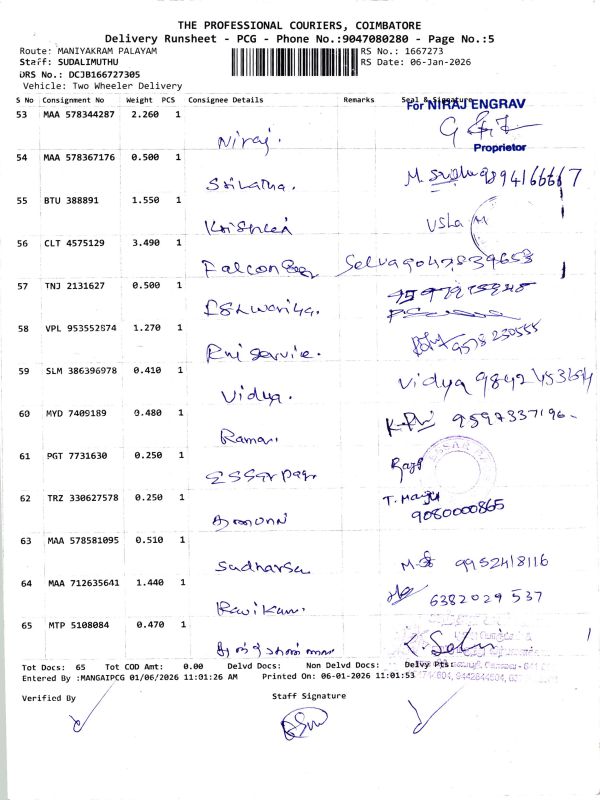 THE PROFESSIONAL COURIERS, COIMBATORE
Delivery Runsheet - PCG - Phone No.:9047080280 - Page No.:5
Route: MANIYAKRAM PALAYAM RS No.: 1667273
Staff: SUDALIMUTHU RS Date: 06-Jan-2026
DRS No.: DCJB166727305
Vehicle: Two Wheeler Delivery
S No Consignment No Weight PCS Consignee Details Remarks Seal & Signature
For NIRAJ ENGRAV
53 MAA 578344287 2.260 1
Niraj.
Proprietor
54 MAA 578367176 0.500 1
Srilatha. 9894166667
55 BTU 388891 1.550 1
Usha
56 CLT 4575129 3.490 1
Falcon Selva 9047839653
57 TNJ 2131627 0.500 1
58 VPL 953552874 1.270 1
service. 9578230555
59 SLM 386396978 0.410 1
Vidya. Vidya
60 MYD 7409189 0.480 1
Raman. 9597337196
61 PGT 7731630 0.250 1
Essar
62 TRZ 330627578 0.250 1
T. Manju
9080000865
63 MAA 578581095 0.510 1
9952418116
64 MAA 712635641 1.440 1
6382029537
65 MTP 5108084 0.470 1
Tot Docs: 65 Tot COD Amt: 0.00 Delvd Docs: Non Delvd Docs: Delvd Pts:
Entered By :MANGAIPCG 01/06/2026 11:01:26 AM Printed On: 06-01-2026 11:01:53
Verified By Staff Signature